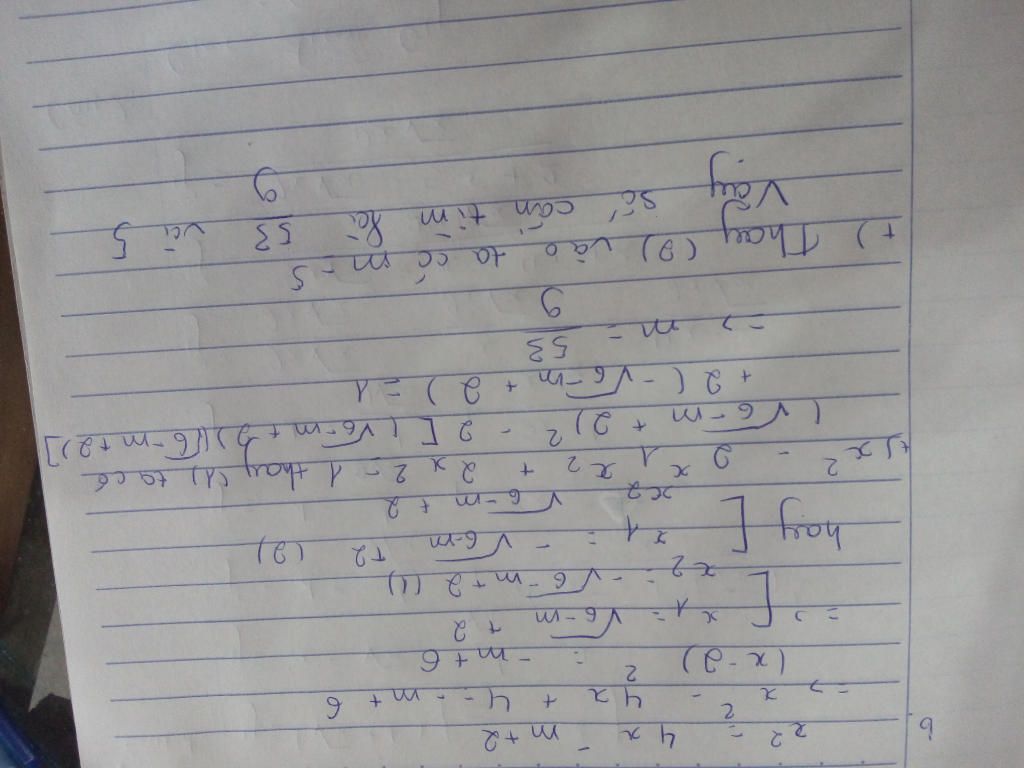 b
x² = 4x - m+2
=> x² - 4x + 4 = - m + 6
(x-2)² = - m + 6
=> [ x1 = √6-m + 2
x2 = - √6-m + 2 (1)
hay [ x1 = - √6-m +2 (2)
x2 √6-m + 2
+) x1² - 2x1x2 + 2x2 = 1 thay (1) ta có
(√6-m + 2)² - 2 [(√6-m + 2)(√6-m + 2)]
+ 2 (-√6-m + 2) = 1
=> m = 53/9
+) Thay (2) vào ta có m = 5
Vậy số cần tìm là 53/9 và 5